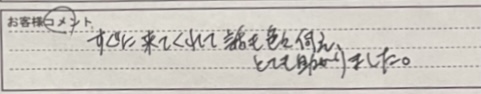 お客様コメント
すぐに来てくれて話も色々伺え、
とても助かりました。